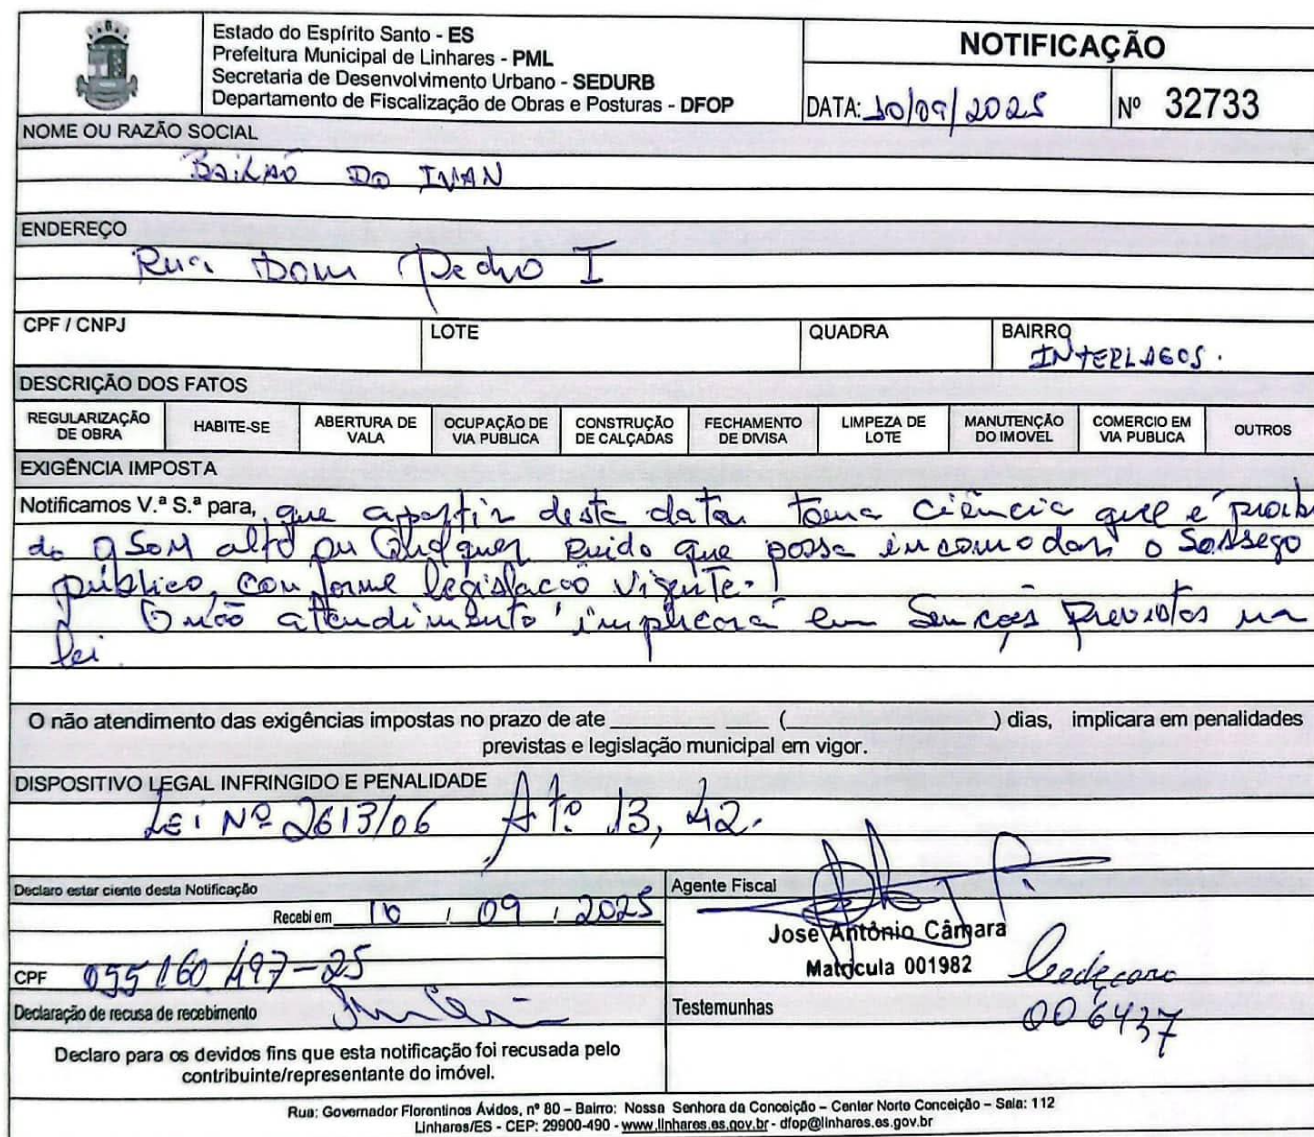 Estado do Espírito Santo - ES
Prefeitura Municipal de Linhares - PML
Secretaria de Desenvolvimento Urbano - SEDURB
Departamento de Fiscalização de Obras e Posturas - DFOP
NOTIFICAÇÃO
DATA: 10/09/2025
Nº 32733
NOME OU RAZÃO SOCIAL
Bailão Do IVAN
ENDEREÇO
Rua Dom Pedro I
CPF / CNPJ
LOTE
QUADRA
BAIRRO
INTERLAGOS.
DESCRIÇÃO DOS FATOS
REGULARIZAÇÃO DE OBRA
HABITE-SE
ABERTURA DE VALA
OCUPAÇÃO DE VIA PUBLICA
CONSTRUÇÃO DE CALÇADAS
FECHAMENTO DE DIVISA
LIMPEZA DE LOTE
MANUTENÇÃO DO IMOVEL
COMERCIO EM VIA PUBLICA
OUTROS
EXIGÊNCIA IMPOSTA
Notificamos V.ª S.ª para, que apartir desta data toma ciência que é proibi
do o Som alto ou Qualquer ruido que possa incomodar o Sossego
público, conforme legislação vigente.
O não atendimento implicará em Sanções previstas na
lei.
O não atendimento das exigências impostas no prazo de ate ( ) dias, implicara em penalidades
previstas e legislação municipal em vigor.
DISPOSITIVO LEGAL INFRINGIDO E PENALIDADE
LEI Nº 2613/06 Atº 13, 42.
Declaro estar ciente desta Notificação
Recebi em 10 / 09 / 2025
CPF 055 160.497-25
Declaração de recusa de recebimento
Declaro para os devidos fins que esta notificação foi recusada pelo
contribuinte/representante do imóvel.
Agente Fiscal
José Antônio Câmara
Matrícula 001982
Testemunhas
006437
Rua: Governador Florentinos Ávidos, nº 80 – Bairro: Nossa Senhora da Conceição – Center Norte Conceição – Sala: 112
Linhares/ES - CEP: 29900-490 - www.linhares.es.gov.br - dfop@linhares.es.gov.br